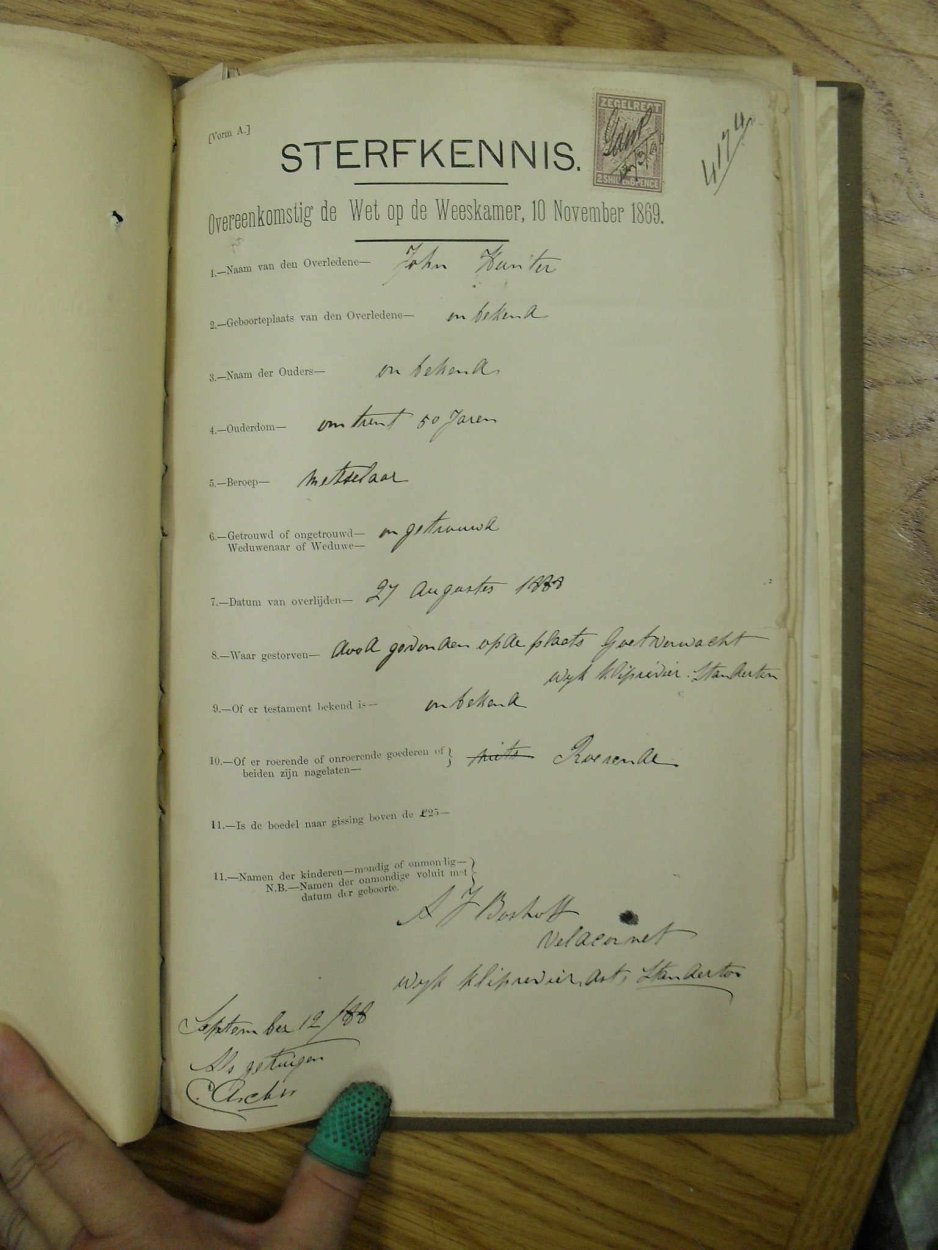 [Vorm A.]
ZEGELREGT
2 SHIL EN 6 PENCE
4174
STERFKENNIS.
Overeenkomstig de Wet op de Weeskamer, 10 November 1869.
1.—Naam van den Overledene— John Hunter
2.—Geboorteplaats van den Overledene— onbekend
3.—Naam der Ouders— onbekend
4.—Ouderdom— omtrent 50 Jaren
5.—Beroep— Metselaar
6.—Getrouwd of ongetrouwd— ongetrouwd
Weduwenaar of Weduwe—
7.—Datum van overlijden— 27 Augustus 1888
8.—Waar gestorven— dood gevonden op de plaats Goetverwacht
wyk kliprevier. Standerton
9.—Of er testament bekend is— onbekend
10.—Of er roerende of onroerende goederen of } niets Roerende
beiden zijn nagelaten—
11.—Is de boedel naar gissing boven de £25—
11.—Namen der kinderen—mondig of onmondig— }
N.B.—Namen der onmondige voluit met
datum der geboorte.
A J Boshoff
Veldcornet
wyk kliprevier, dist, Standerton
September 12/88
Als getuigen